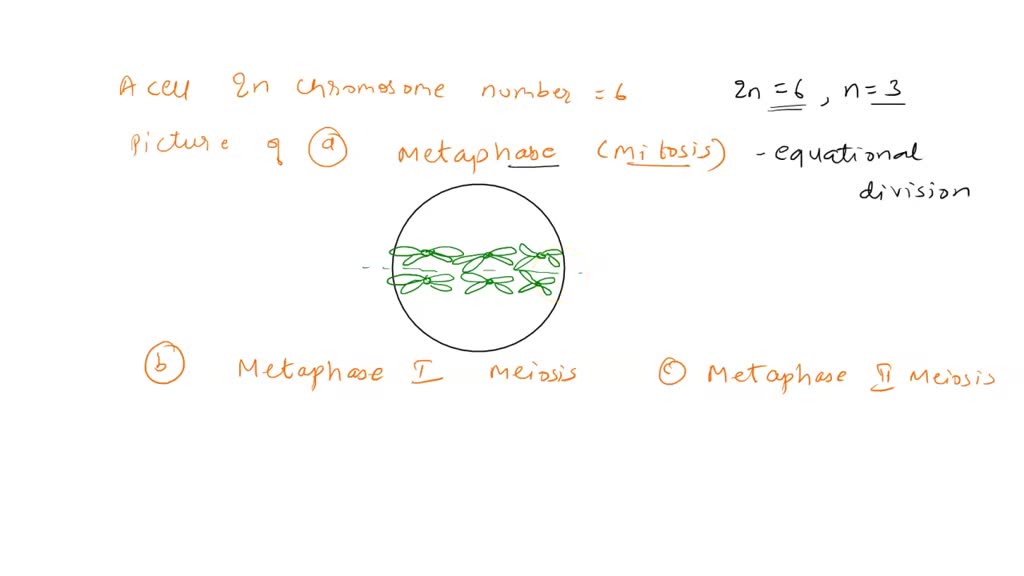 A cell 2n chromosome number = 6 2n = 6, n = 3
Picture of (a) Metaphase (Mitosis) - equational
division
(b) Metaphase I meiosis (c) Metaphase II Meiosis